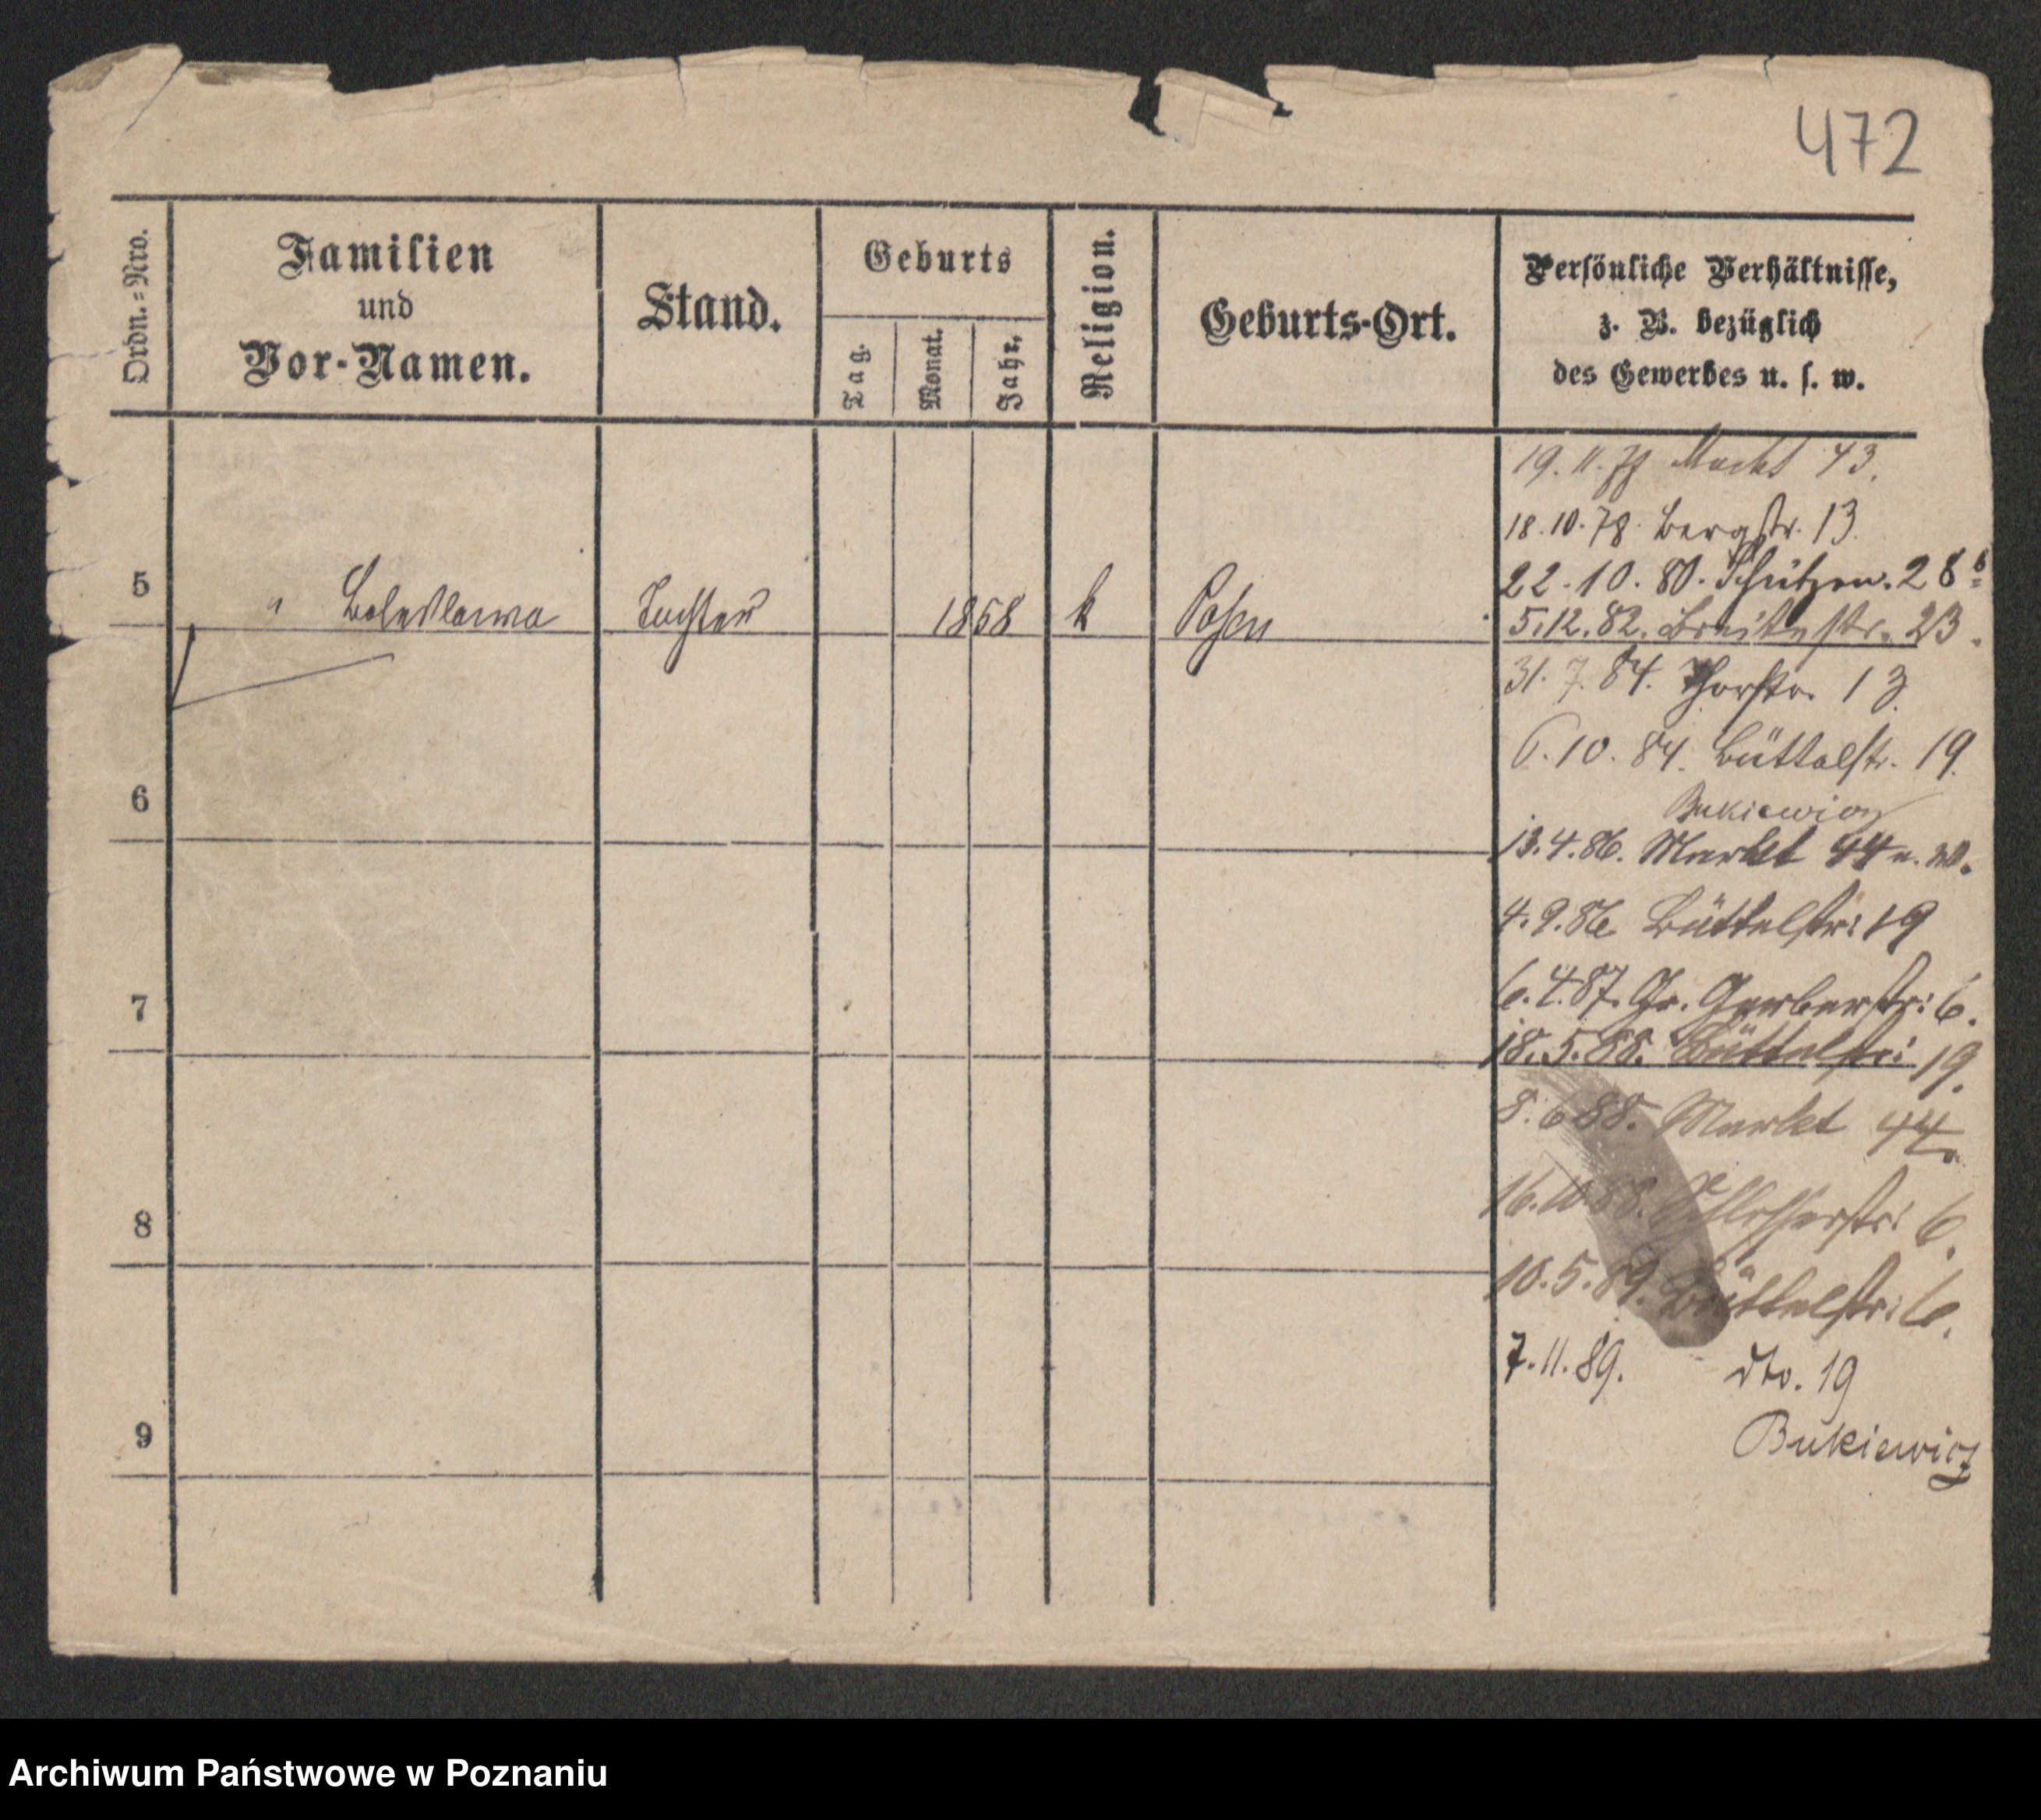 472
Ordn.=Nro.
Familien
und
Vor-Namen.
Stand.
Geburts
Tag.
Monat.
Jahr.
Religion.
Geburts-Ort.
Persönliche Verhältnisse,
z. B. bezüglich
des Gewerbes u. s. w.
19. 11. 77 Markt 43.
18. 10. 78. Bergstr. 13.
22. 10. 80. Schützen. 28 b
5 " Boleslawa Tochter 1868 k Posen
5. 12. 82. Breitestr. 23.
31. 7. 84. Thorstr. 13.
6. 10. 84. Büttelstr. 19.
6
Bukiewicz
13. 4. 86. Markt 44
4. 9. 86 Büttelstr: 19
7
6. 4. 87. Gr. Gerberstr: 6.
18. 5. 88. Büttelstr: 19.
8. 6 88. Markt 44.
8
16. 10. 88. Schlosserstr: 6.
10. 5. 89. Büttelstr: 6.
7. 11. 89. dto. 19
9
Bukiewicz
Archiwum Państwowe w Poznaniu